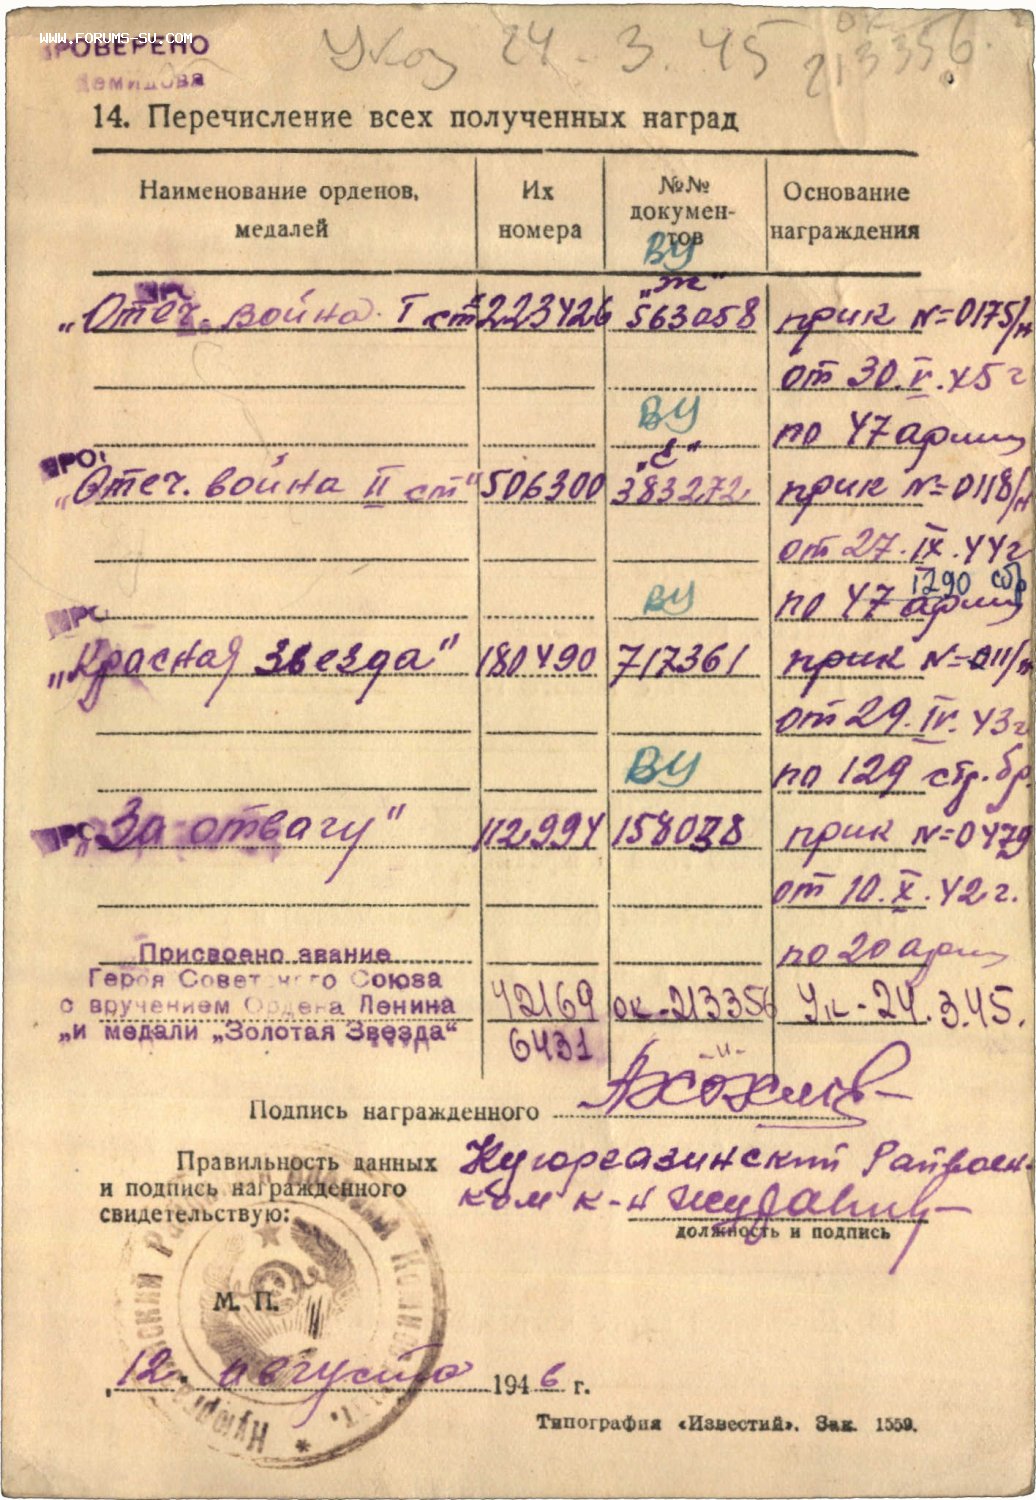 WWW.FORUMS-SU.COM
ПРОВЕРЕНО
Демидова
Указ 24.3.45
ОК
213356.
14. Перечисление всех полученных наград
Наименование орденов, медалей
Их номера
№№ документов
Основание награждения
ВУ
„ж"
„Отеч. война I ст" 223426 563058 прик №=0175/н
от 30.V.45г
ВУ
по 47 армии
ПРО
„с"
„Отеч. война II ст" 506300 383272 прик №=0118/н
от 27.IX.44г
1290 сбр
ВУ
по 47 армии
ПРО
„Красная Звезда" 180490 717361 прик №=011/н
от 29.IV.43г
ВУ
по 129 стр. бр.
ПРО
„За отвагу" 112994 158038 прик №=0479
от 10.X.42г.
по 20 армии
Присвоено звание
Героя Советского Союза
с вручением Ордена Ленина 42169 ОК-213356 Ук-24.3.45.
„и медали „Золотая Звезда" 6431
-"-
Подпись награжденного
Правильность данных
и подпись награжденного
свидетельствую:
Кугюргазинский Райвоен-
ком к-н
должность и подпись
М. П.
12. августа 1946 г.
Типография «Известий». Зак. 1559.